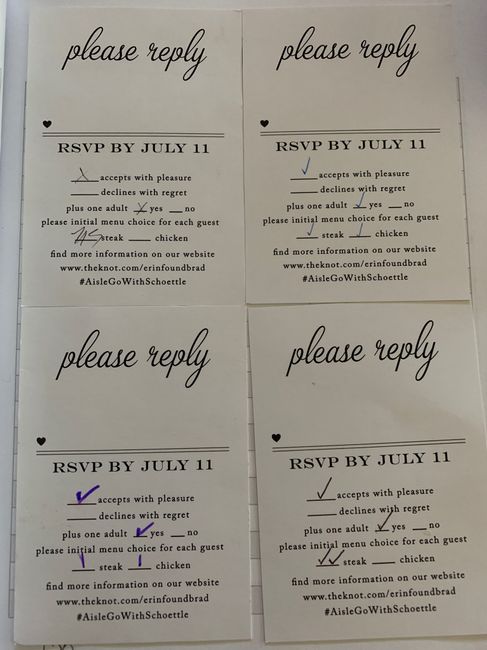 please reply
RSVP BY JULY 11
X accepts with pleasure
declines with regret
plus one adult X yes no
please initial menu choice for each guest
steak chicken
find more information on our website
www.theknot.com/erinfoundbrad
#AisleGoWithSchoettle
please reply
RSVP BY JULY 11
✓ accepts with pleasure
declines with regret
plus one adult ✓ yes no
please initial menu choice for each guest
✓ steak / chicken
find more information on our website
www.theknot.com/erinfoundbrad
#AisleGoWithSchoettle
please reply
RSVP BY JULY 11
✓ accepts with pleasure
declines with regret
plus one adult ✓ yes no
please initial menu choice for each guest
| steak | chicken
find more information on our website
www.theknot.com/erinfoundbrad
#AisleGoWithSchoettle
please reply
RSVP BY JULY 11
✓ accepts with pleasure
declines with regret
plus one adult ✓ yes no
please initial menu choice for each guest
✓✓ steak chicken
find more information on our website
www.theknot.com/erinfoundbrad
#AisleGoWithSchoettle